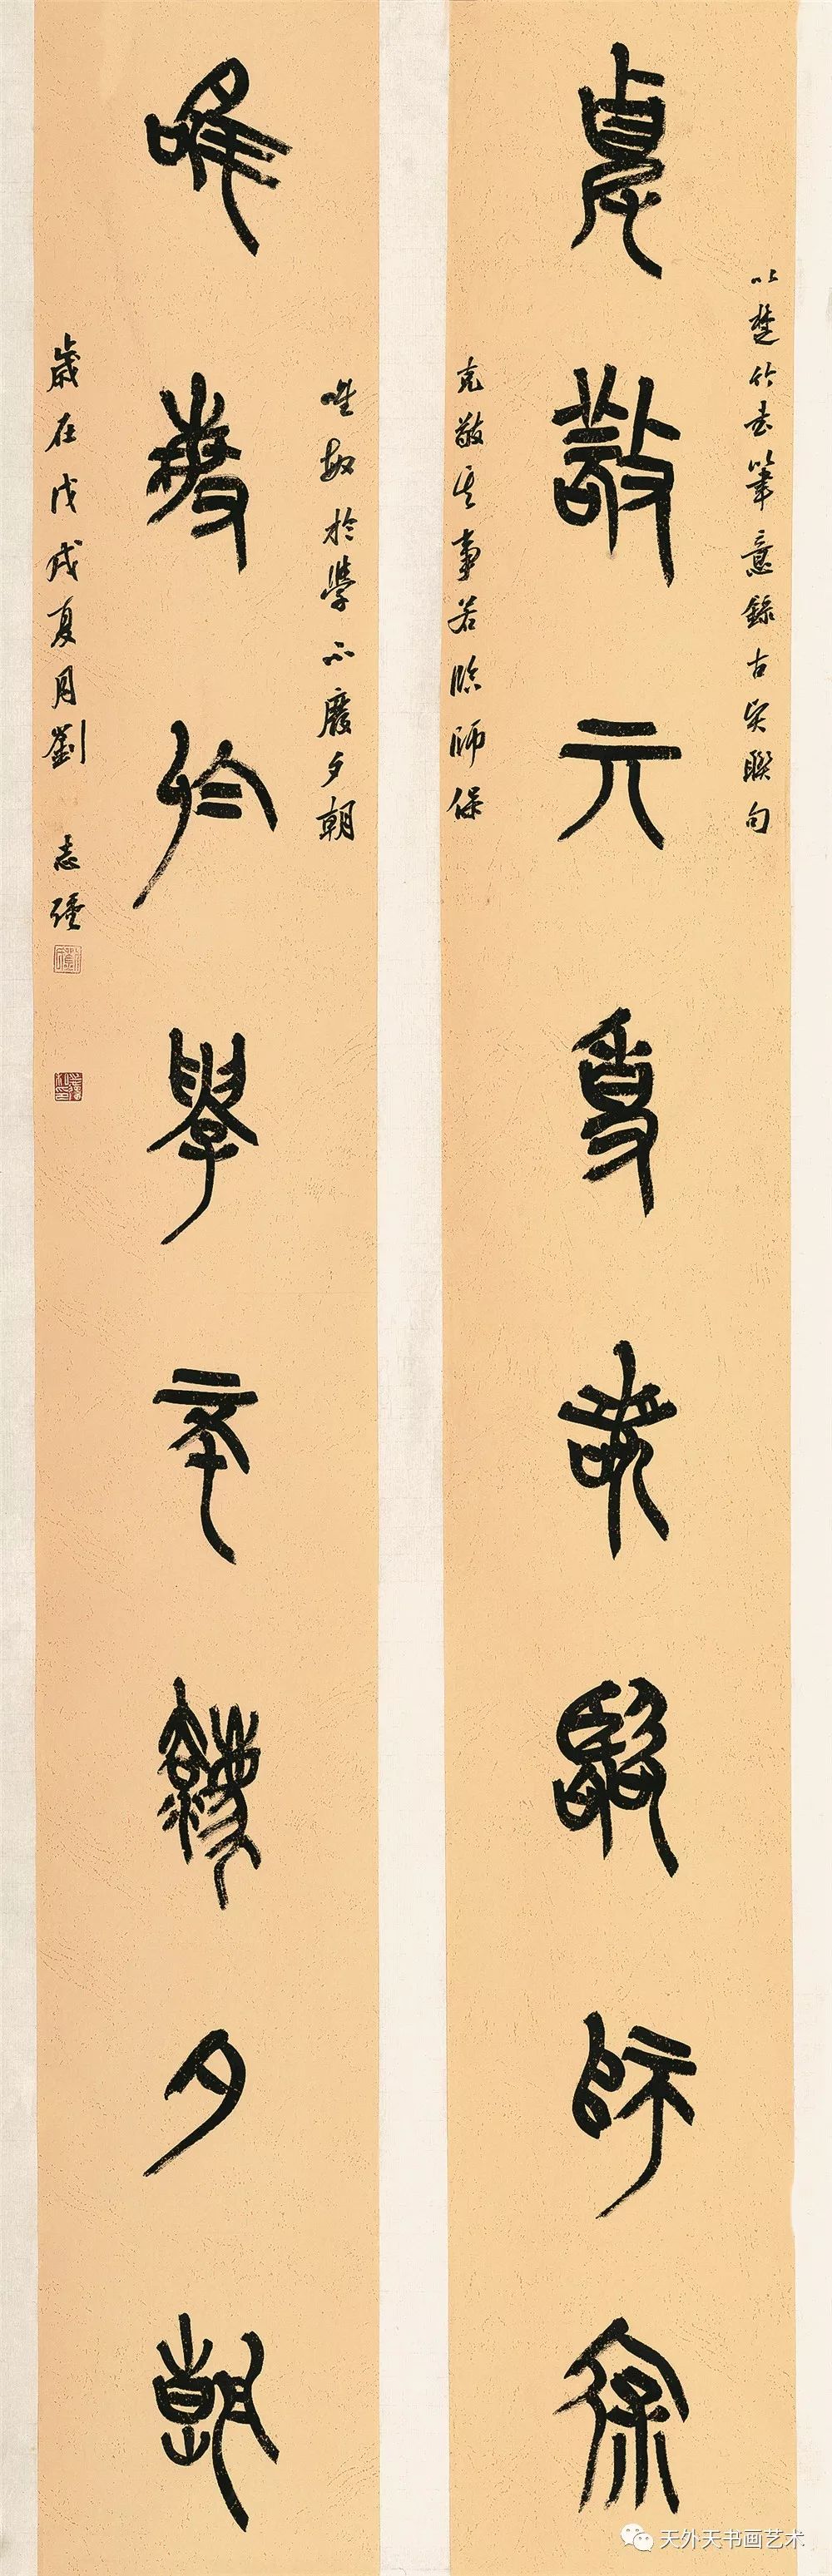 克敬其事若臨師保
以楚竹書筆意錄古賢聯句
克敬其事若臨師保
唯敏於學不廢夕朝
唯敏於學不廢夕朝
歲在戊戌夏月劉志
天外天书画艺术